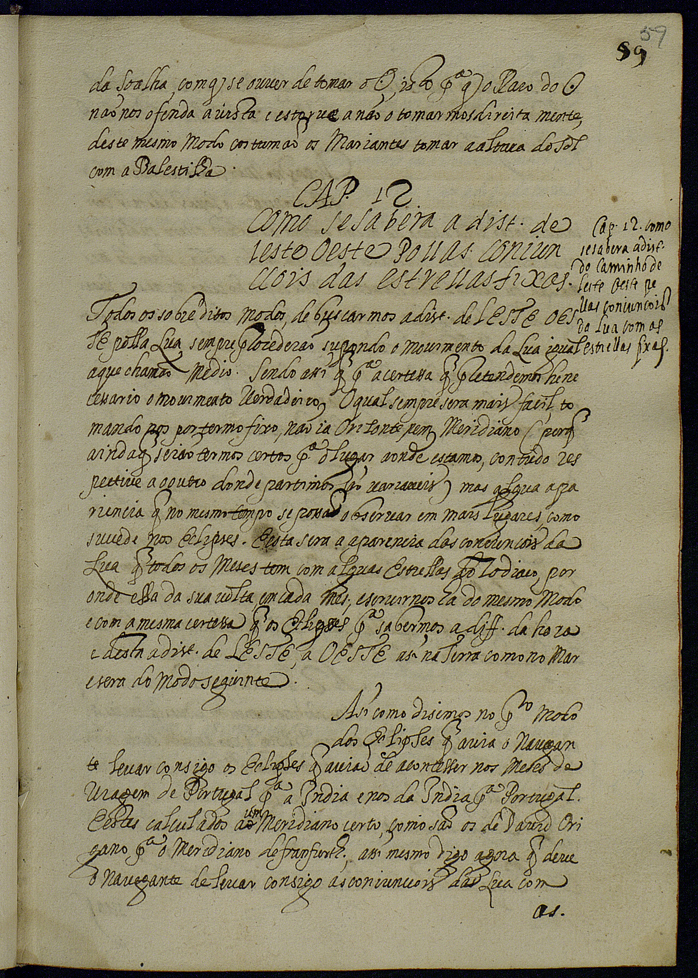 59
59
da Soalha, com q̃ se ouver de tomar o ☉, isto p.ª q̃ o Rayo do ☉
não nos ofenda a vista e estorve a não o tomarmos direita mente,
deste mesmo modo costumaõ os Mariantes tomar a altura do Sol
com a Balestilha.
CAP. 12
Como se sabera a dist. de
Leste Oeste pollas coniun
ções das estrellas fixas.
Cap. 12. como
se sabera a dist.
do Caminho de
leste oeste pe
llas coniuncois
da Lua com as
estrellas fixas.
Todos os sobreditos modos, de buscarmos a dist. de LESTE OES
TE polla Lua sempre procederaõ supondo o movimento da Lua igual
a que chamão Medio. Sendo assi q̃ p.ª a certeza q̃ pretendemos he ne
cessario o movimento verdadeiro, O qual sempre sera mais facil, to
mando nos por termo fixo, não ia Orizonte, nem Meridiano (porq̃
ainda q̃ seiaõ termos certos p.ª o lugar aonde estamos, contudo res
pective a outro donde partimos são variaveis) mas algũa apa
riencia q̃ no mesmo tempo se possa observar em mais lugares, como
sucede nos Eclipses. Esta sera a aparencia das coniuncois da
Lua q̃ todos os Meses tem com algũas Estrellas do Zodiaco, por
onde ella da sua volta em cada mes, e servirnos ha do mesmo Modo
e com a mesma certeza q̃ os Eclipses p.ª sabermos a diff. da hora
e desta a dist. de LESTE, a OESTE assi na Terra como no Mar
e sera do Modo seguinte.
Assi como disemos no pr.º modo
dos Eclipses q̃ avia o Navegan
te levar consigo os Eclipses q̃ aviaõ de acontesser nos Meses de
Viagem de Portugal p.ª a India e nos da India p.ª Portugal.
E estas calculados a um Meridiano certo, como são os de David Ori
gano p.ª o Meridiano de franfurth, assi mesmo digo agora q̃ deve
o Navegante de levar consigo as coniuncois da Lua com
as.